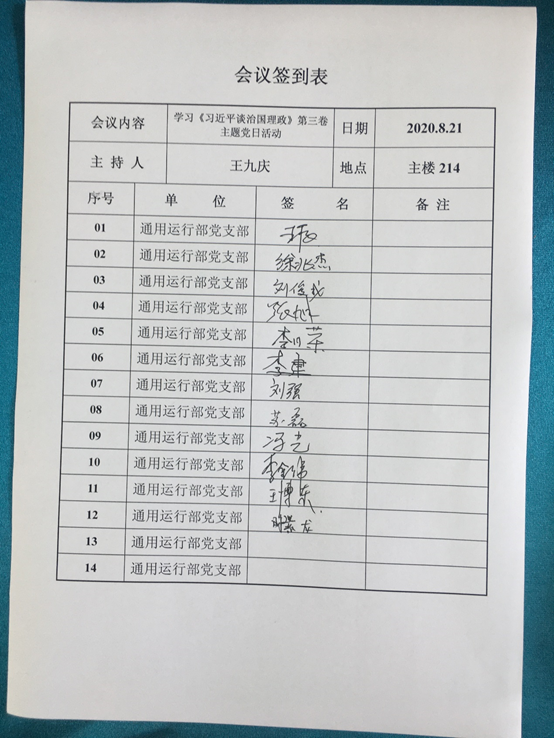 会议签到表
会议内容 学习《习近平谈治国理政》第三卷 日期 2020.8.21
主题党日活动
主 持 人 王九庆 地点 主楼 214
序号 单 位 签 名 备 注
01 通用运行部党支部
02 通用运行部党支部 徐兆杰
03 通用运行部党支部 刘俊
04 通用运行部党支部
05 通用运行部党支部 李川荣
06 通用运行部党支部 李肃
07 通用运行部党支部 刘强
08 通用运行部党支部 苏磊
09 通用运行部党支部 冯光
10 通用运行部党支部 李金伟
11 通用运行部党支部 王博东
12 通用运行部党支部
13 通用运行部党支部
14 通用运行部党支部